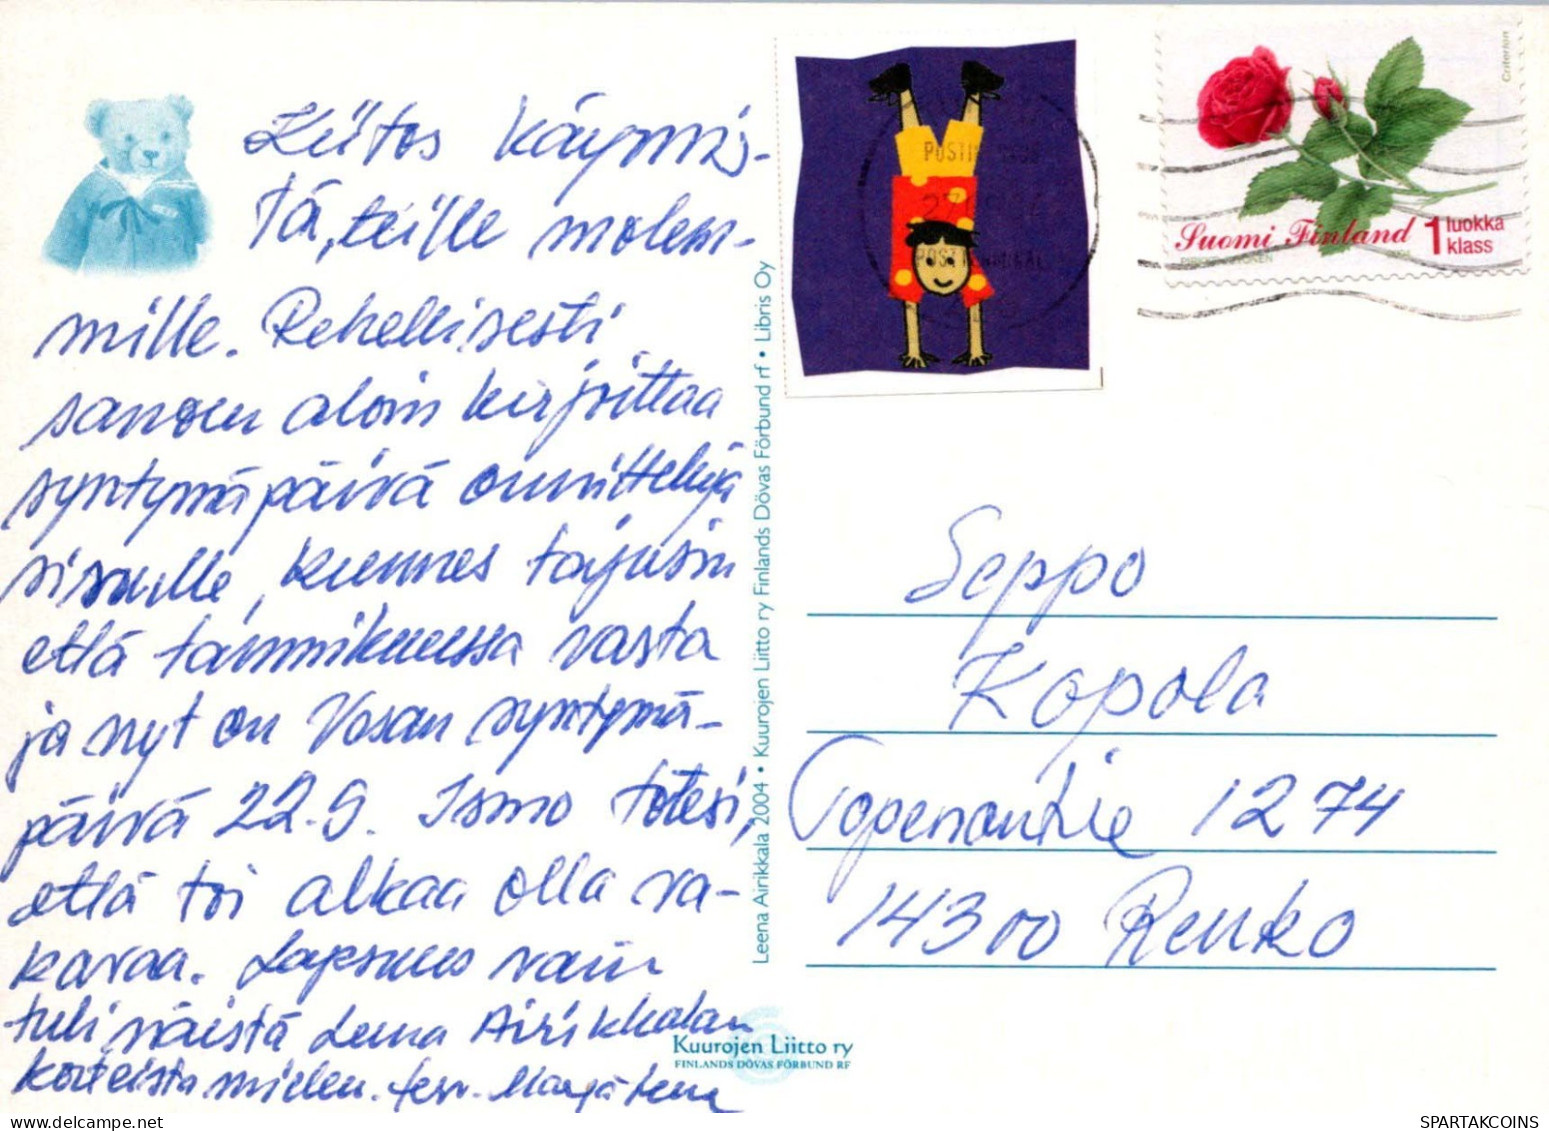 Kiitos käymis-
tä, teille molem-
mille. Rehellisesti
sanoen aloin kirjoittaa
syntymäpäivä onnitteluja
sinulle, kunnes tajusin
että tammikuussa vasta
ja nyt on Vesan syntymä-
päivä 22.9. Ismo totesi,
että toi alkaa olla va-
kavaa. Lapsuus vain
tuli näistä Leena Airikkalan
korteista mieleen. terv. Marja Leena
Leena Airikkala 2004 • Kuurojen Liitto ry Finlands Dövas Förbund rf • Libris Oy
Kuurojen Liitto ry
FINLANDS DÖVAS FÖRBUND RF
Criterion
Suomi Finland 1 luokka
klass
2004
Seppo
Kopola
Topenontie 1274
14300 Renko
SPARTAKCOINS